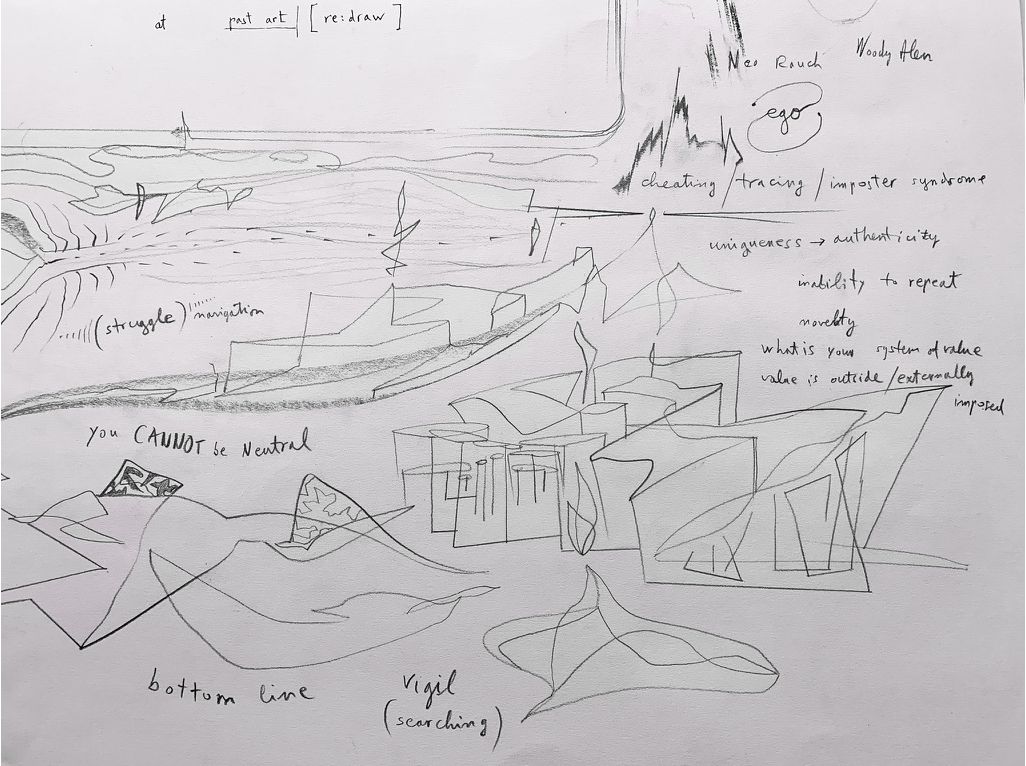 at past art | [re:draw]
Neo Rauch
Woody Alen
ego
cheating / tracing / imposter syndrome
uniqueness → authenticity
inability to repeat
novelty
what is your system of value
value is outside / externally
imposed
(struggle) navigation
you CANNOT be Neutral
bottom line
vigil
(searching)